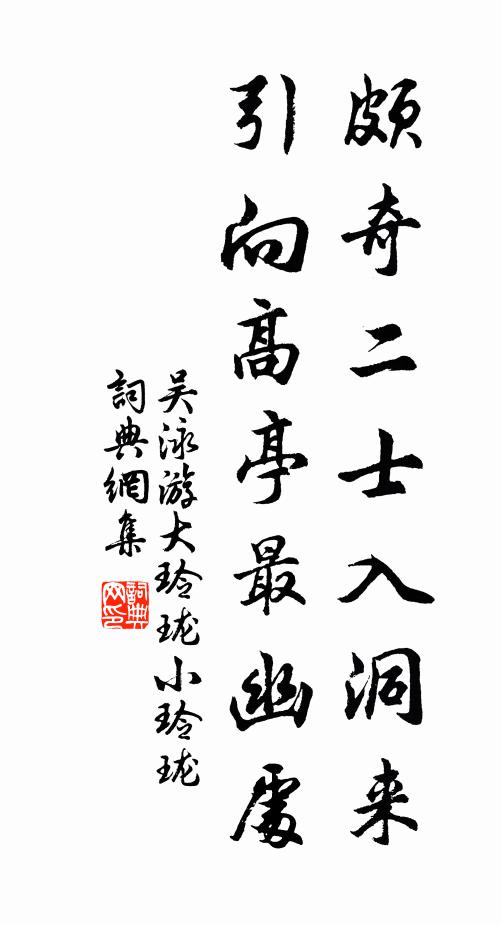 頗奇二士入洞来
引向高亭最幽處
吴泳游大玲珑小玲珑
詞典網集
詞典
网印